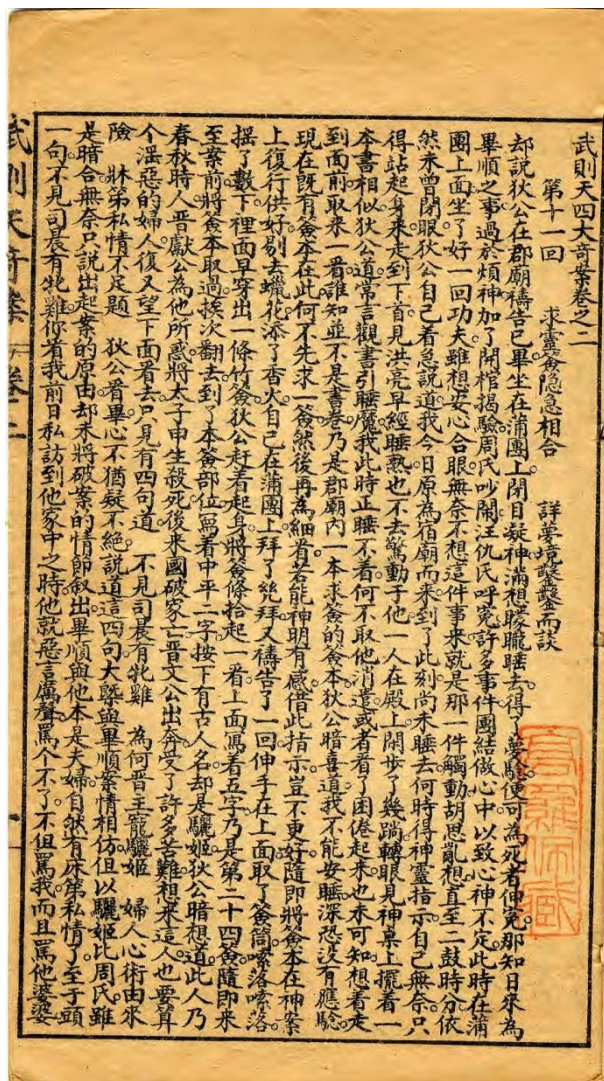 武則天四大奇案卷之二
第十一回　求靈籤隱急相合　詳夢境鑿鑿而談
却説狄公在郡廟禱告已畢坐在蒲團上閉目凝神滿想朦朧睡去得了夢驗便可為死者伸冤那知日來為
畢順之事過於煩神加了開棺揭驗周氏吵鬧汪仇氏呼冤許多事件團結做心中以致心神不定此時在蒲
團上面坐了好一回功夫雖想安心合眼無奈不想這件事來就是那一件觸動胡思亂想直至二鼓時分依
然未曾閉眼狄公自己着急説道我今日原為宿廟而來到了此刻尚未睡去何時得神靈指示自己無奈只
得站起身來走到下首見洪亮早經睡熟也不去驚動于他一人在殿上閒步了幾蹚轉眼見神桌上擺着一
本書相似狄公道常言觀書引睡魔我此時正睡不着何不取他消遣或者看了困倦起來也未可知想着走
到面前取來一看誰知並不是書卷乃是郡廟內一本求簽的簽本狄公暗喜道我不能安睡深恐沒有應騐
現在既有簽本在此何不先求一簽然後再為細看若能神明有感借此指示豈不更好隨即將簽本在神案
上復行供好剔去蠟花添了香火自己在蒲團上拜了幾拜又禱告了一回伸手在上面取了簽筒嗦落嗦落
摇了數下裡面早穿出一條竹簽狄公赶着起身將簽條拾起一看上面寫着五字乃是第二十四簽隨即來
至案前將簽本取過挨次翻去到了本簽部位寫着中平二字按下有古人名却是驪姬狄公暗想道此人乃
春秋時人晋獻公為他所惑將太子申生殺死後來國破家亡晋文公出奔受了許多苦難想來這人也要算
个淫惡的婦人復又望下面看去只見有四句道　不見司晨有牝雞　為何晋王寵驪姬　婦人心術由來
險　牀第私情不定題　狄公看畢心不猶疑不絕説道這四句大槩與畢順案情相仿但以驪姬比周氏雖
是暗合無奈只説出起案的原由却未將破案的情節敘出畢順與他本是夫婦自然有床第私情了至于頭
一句不見司晨有牝雞你看我前日私訪到他家中之時他就惡言厲聲罵个不了不但罵我而且罵他婆婆
武則天奇案　卷二
高羅佩藏